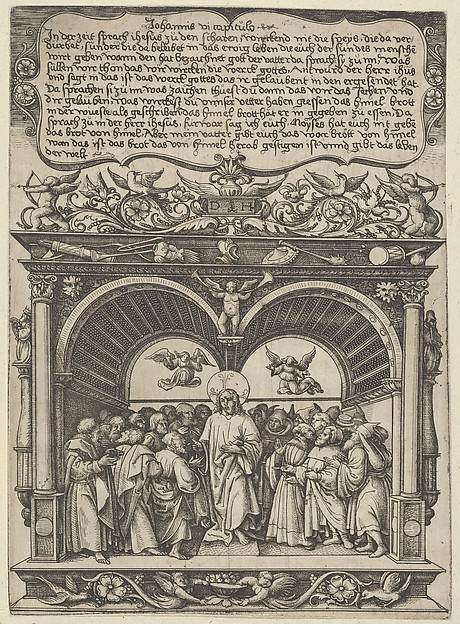 Johannis vi capitulo
In der zeit sprach ihesus zu den scharen wirckend nit die speys die da ver
dirbet sunder die da beleibet in das ewig leben die euch der sun des mensche
wirt geben wann den hat bezaichnet gott der vatter da sprachē sy zu im was
sullen wir thon das wir wircken die werck gottes Antwurd der herr ihūs
und sagt in das ist das werck gottes das ir gelaubt in den er gesendet hat
Da sprachen si zu im was zaichen thuest du dann das wir das sechen und
dir gelauben was wirckest du unsser vetter haben giessen das himel brott
in der wueste als geschriben das himel brott hat er in gegeben zu essen Da
sprach zu in der herr ihesus fur war sag ich euch Moyses hat euch nit gebē
das brot von himel Aber mein vatter gibt euch das wor brott von himel
wan das ist das brot das von himel herab gestigen ist unnd gibt das leben
der welt
D I H